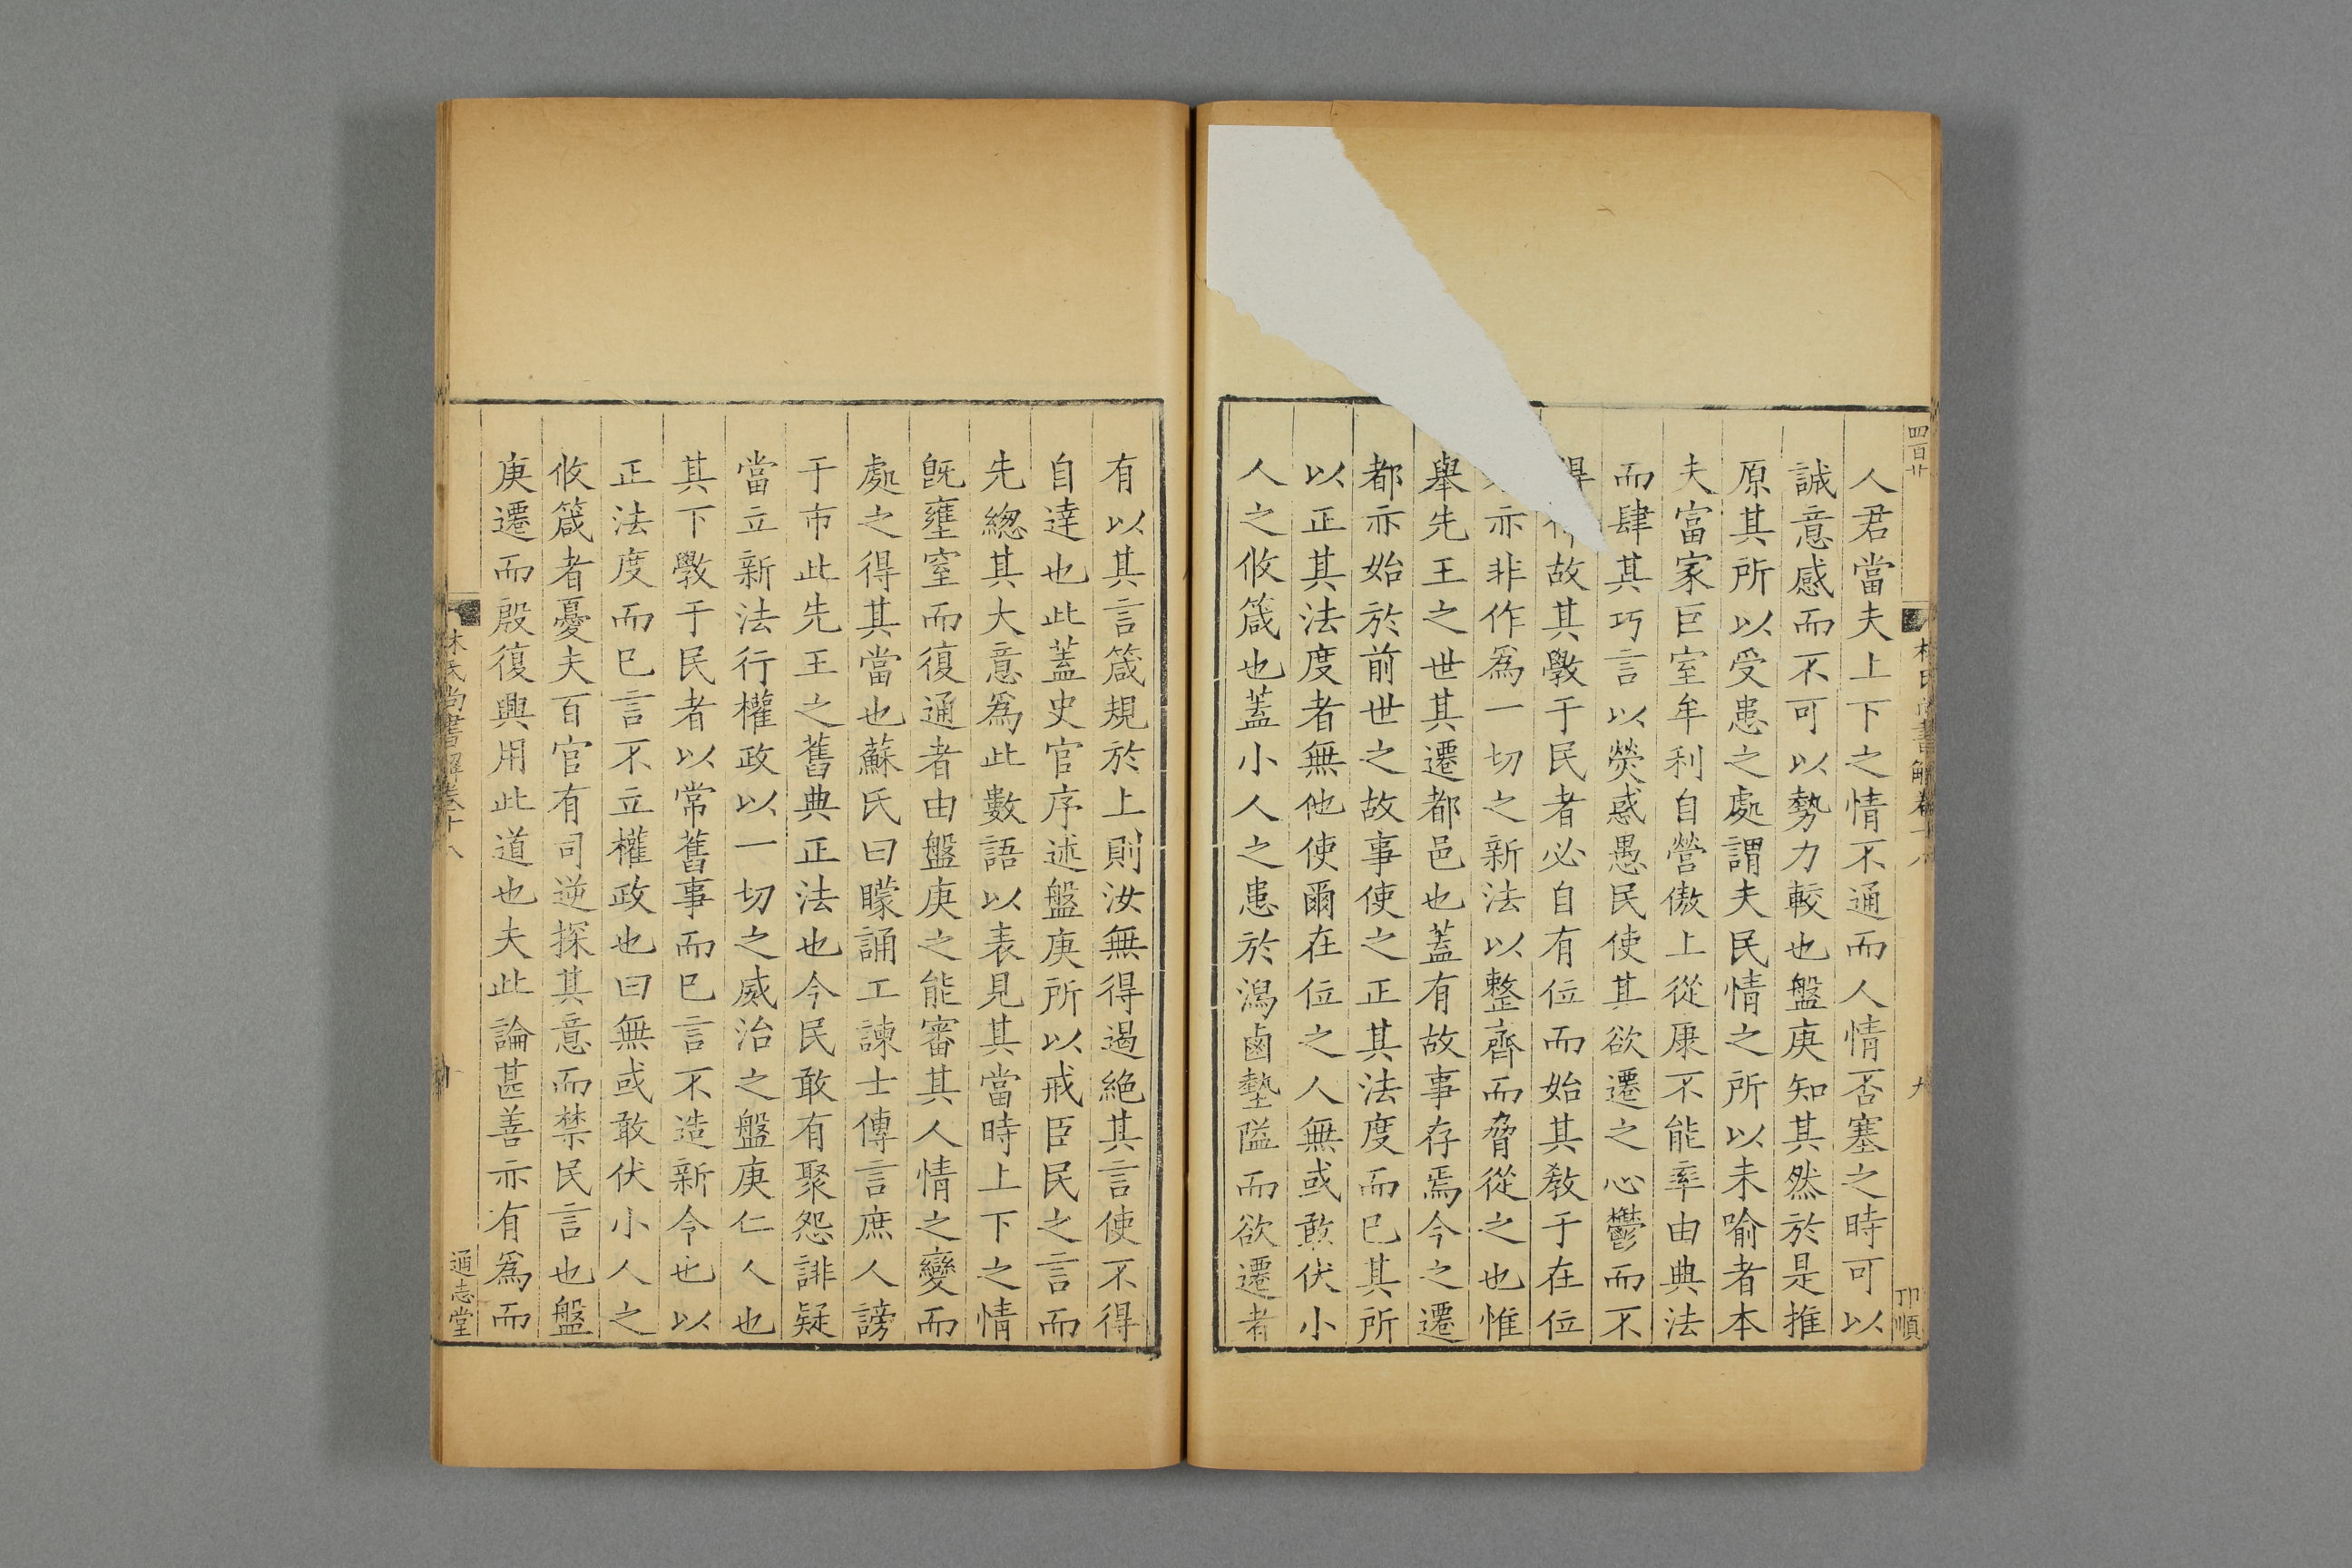 四百廿
人君當夫上下之情不通而人情否塞之時可以
誠意感而不可以勢力較也盤庚知其然於是推
原其所以受患之處謂夫民情之所以未喻者本
夫富家巨室牟利自營傲上從康不能率由典法
而肆其巧言以熒惑愚民使其欲遷之心鬱而不
得故其斆于民者必自有位而始其敎于在位
亦非作爲一切之新法以整齊而脅從之也惟
舉先王之世其遷都邑也蓋有故事存焉今之遷
都亦始於前世之故事使之正其法度而巳其所
以正其法度者無他使爾在位之人無或敢伏小
人之攸箴也蓋小人之患於潟鹵墊隘而欲遷者
林氏尚書解卷十八
九
卭順
有以其言箴規於上則汝無得過絶其言使不得
自達也此蓋史官序述盤庚所以戒臣民之言而
先緫其大意爲此數語以表見其當時上下之情
旣壅窒而復通者由盤庚之能審其人情之變而
處之得其當也蘇氏曰矇誦工諫士傳言庶人謗
于市此先王之舊典正法也今民敢有聚怨誹疑
當立新法行權政以一切之威治之盤庚仁人也
其下斆于民者以常舊事而巳言不造新令也以
正法度而巳言不立權政也曰無或敢伏小人之
攸箴者憂夫百官有司逆探其意而禁民言也盤
庚遷而殷復興用此道也夫此論甚善亦有爲而
林氏尚書解卷十八
通志堂